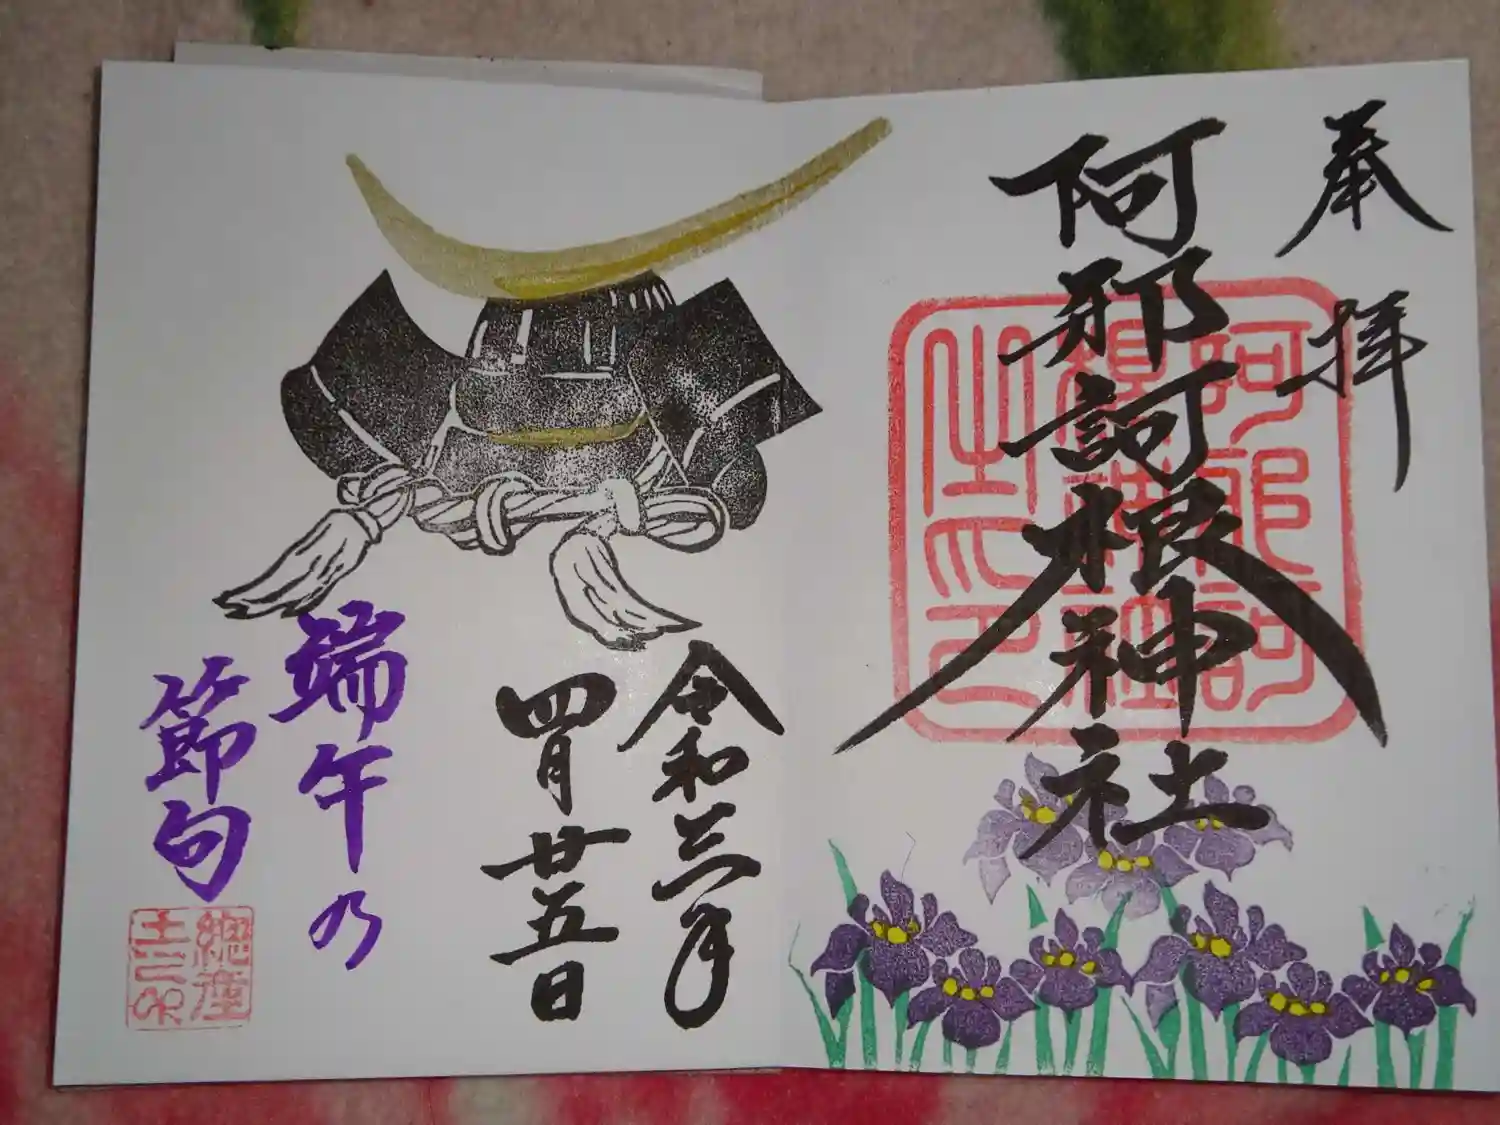 奉拝
阿邪訶根神社
令和三年
四月廿五日
端午の
節句